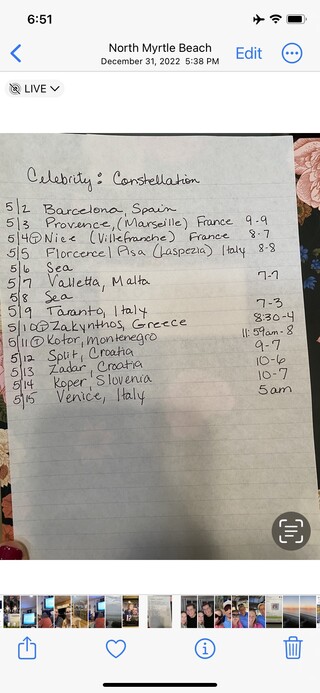 6:51
North Myrtle Beach
December 31, 2022 5:38 PM
Edit
LIVE
Celebrity: Constellation
5/2 Barcelona, Spain
5/3 Provence, (Marseille) France 9-9
5/4 T Nice (Villefranche) France 8-7
5/5 Florcerce/Pisa (Laspezia) Italy 8-8
5/6 Sea
5/7 Valletta, Malta 7-7
5/8 Sea
5/9 Taranto, Italy 7-3
5/10 T Zakynthos, Greece 8:30-4
5/11 T Kotor, montenegro 11:59am-8
5/12 Split, Croatia 9-7
5/13 Zadar, Croatia 10-6
5/14 Koper, Slovenia 10-7
5/15 Venice, Italy 5am